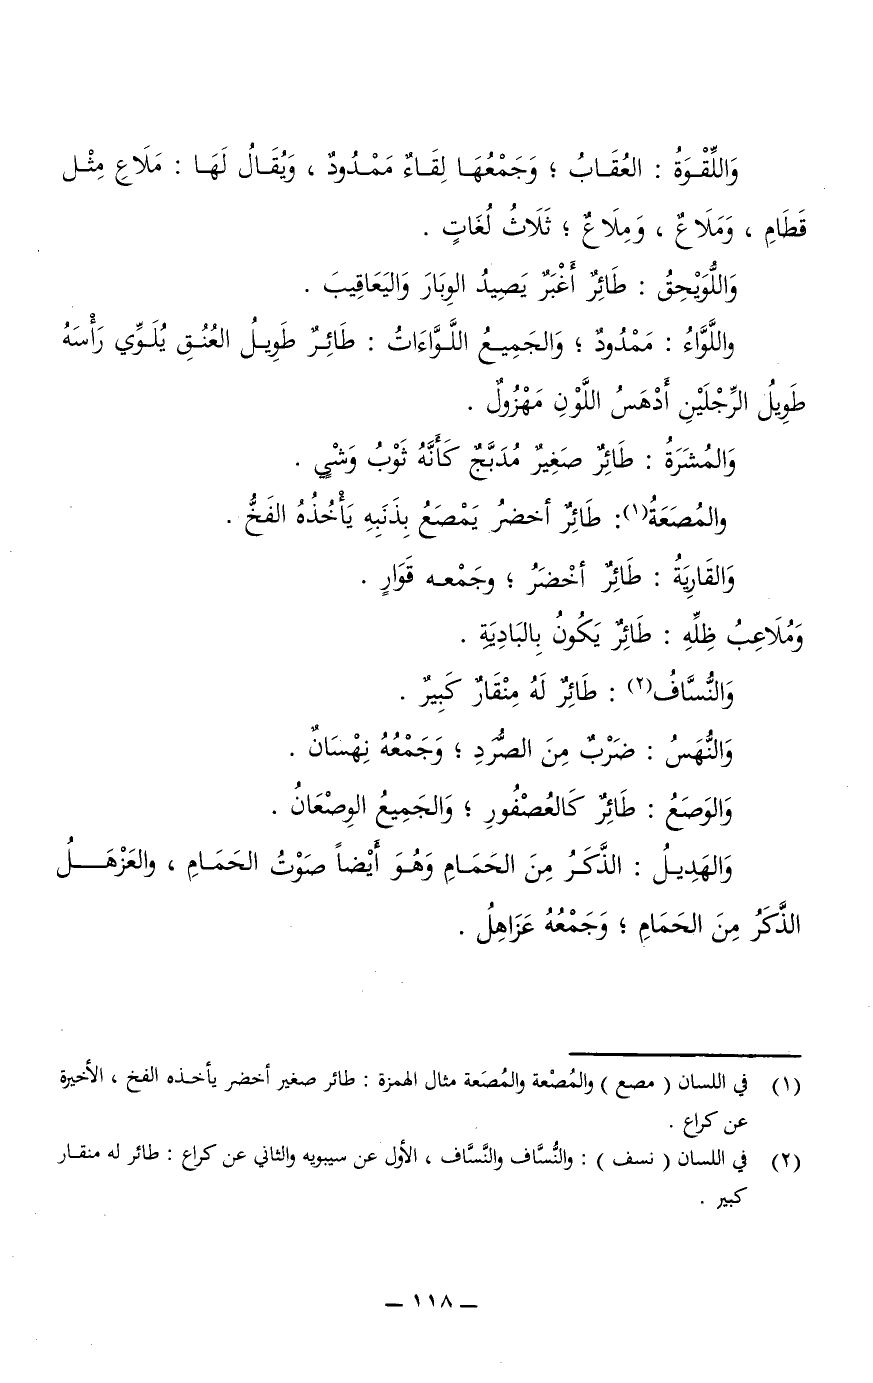 وَاللِّقْوَةُ : العُقَابُ ؛ وَجَمْعُهَا لِقَاءٌ مَمْدُودٌ ، وَيُقَالُ لَهَا : مَلَاعِ مِثْل
قَطَامِ ، وَمَلَاعٌ ، وَمِلَاعٌ ؛ ثَلَاثُ لُغَاتٍ .
وَاللُّوَيْحِقُ : طَائِرٌ أَغْبَرٌ يَصِيدُ الوِبَارَ وَاليَعَاقِيبَ .
واللَّوَّاءُ : مَمْدُودٌ ؛ وَالجَمِيعُ اللَّوَّاءَاتُ : طَائِرٌ طَوِيلُ العُنُقِ يُلَوِّي رَأْسَهُ
طَوِيلُ الرِّجْلَيْنِ أَدْهَسُ اللَّوْنِ مَهْزُولٌ .
وَالمُشَرَةُ : طَائِرٌ صَغِيرٌ مُدَبَّجٌ كَأَنَّهُ ثَوْبُ وَشْيٍ .
والمُصَعَةُ(١): طَائِرٌ أخضرُ يَمْصَعُ بِذَنَبِهِ يَأْخُذُهُ الفَخُّ .
وَالقَارِيَةُ : طَائِرٌ أخْضَرُ ؛ وجَمْعه قَوَارٍ .
وَمُلَاعِبُ ظِلِّهِ : طَائِرٌ يَكُونُ بِالبَادِيَةِ .
وَالنُّسَّافُ(٢) : طَائِرٌ لَهُ مِنْقَارٌ كَبِيرٌ .
وَالنُّهَسُ : ضَرْبٌ مِنَ الصُّرَدِ ؛ وَجَمْعُهُ نِهْسَانٌ .
وَالوَصَعُ : طَائِرٌ كَالعُصْفُورِ ؛ وَالجَمِيعُ الوِصْعَانُ .
وَالهَدِيلُ : الذَّكَرُ مِنَ الحَمَامِ وَهُوَ أَيْضاً صَوْتُ الحَمَامِ ، والعَزْهَلُ
الذَّكَرُ مِنَ الحَمَامِ ؛ وَجَمْعُهُ عَزَاهِلُ .
(١) في اللسان ( مصع ) والمُصْعة والمُصَعة مثال الهمزة : طائر صغير أخضر يأخذه الفخ ، الأخيرة
عن كراع .
(٢) في اللسان ( نسف ) : والنُّسَّاف والنَّسَّاف ، الأول عن سيبويه والثاني عن كراع : طائر له منقار
كبير .
— ١١٨ —